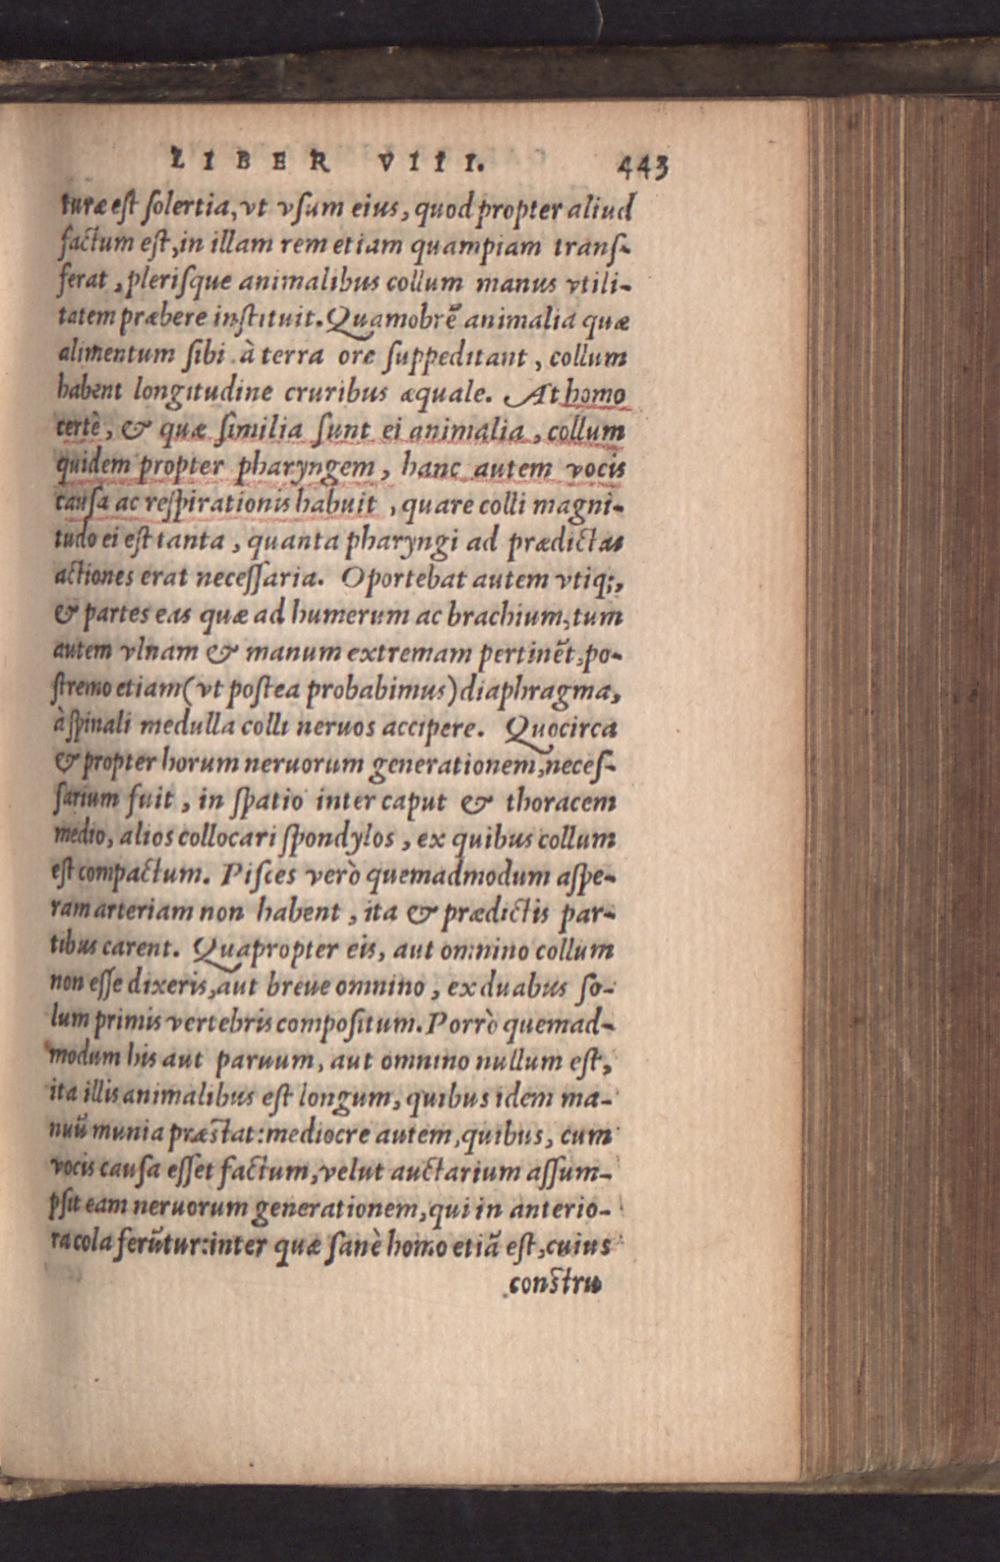 LIBER VIII. 443
turæ est solertia, vt vsum eius, quod propter aliud
factum est, in illam rem etiam quampiam trans-
ferat, plerisque animalibus collum manus vtili-
tatem præbere instituit. Quamobrē animalia quæ
alimentum sibi à terra ore suppeditant, collum
habent longitudine cruribus æquale. At homo
certè, & quæ similia sunt ei animalia, collum
quidem propter pharyngem, hanc autem vocis
causa ac respirationis habuit, quare colli magni-
tudo ei est tanta, quanta pharyngi ad prædictas
actiones erat necessaria. Oportebat autem vtiq;,
& partes eas quæ ad humerum ac brachium, tum
autem vlnam & manum extremam pertinēt, po-
stremo etiam (vt postea probabimus) diaphragma,
à spinali medulla colli neruos accipere. Quocirca
& propter horum neruorum generationem, neces-
sarium fuit, in spatio inter caput & thoracem
medio, alios collocari spondylos, ex quibus collum
est compactum. Pisces verò quemadmodum aspe-
ram arteriam non habent, ita & prædictis par-
tibus carent. Quapropter eis, aut omnino collum
non esse dixeris, aut breue omnino, ex duabus so-
lum primis vertebris compositum. Porrò quemad-
modum his aut paruum, aut omnino nullum est,
ita illis animalibus est longum, quibus idem ma-
nuū munia præstat: mediocre autem, quibus, cum
vocis causa esset factum, velut auctarium assum-
psit eam neruorum generationem, qui in anterio-
ra cola ferūtur: inter quæ sanè homo etiā est, cuius
constru